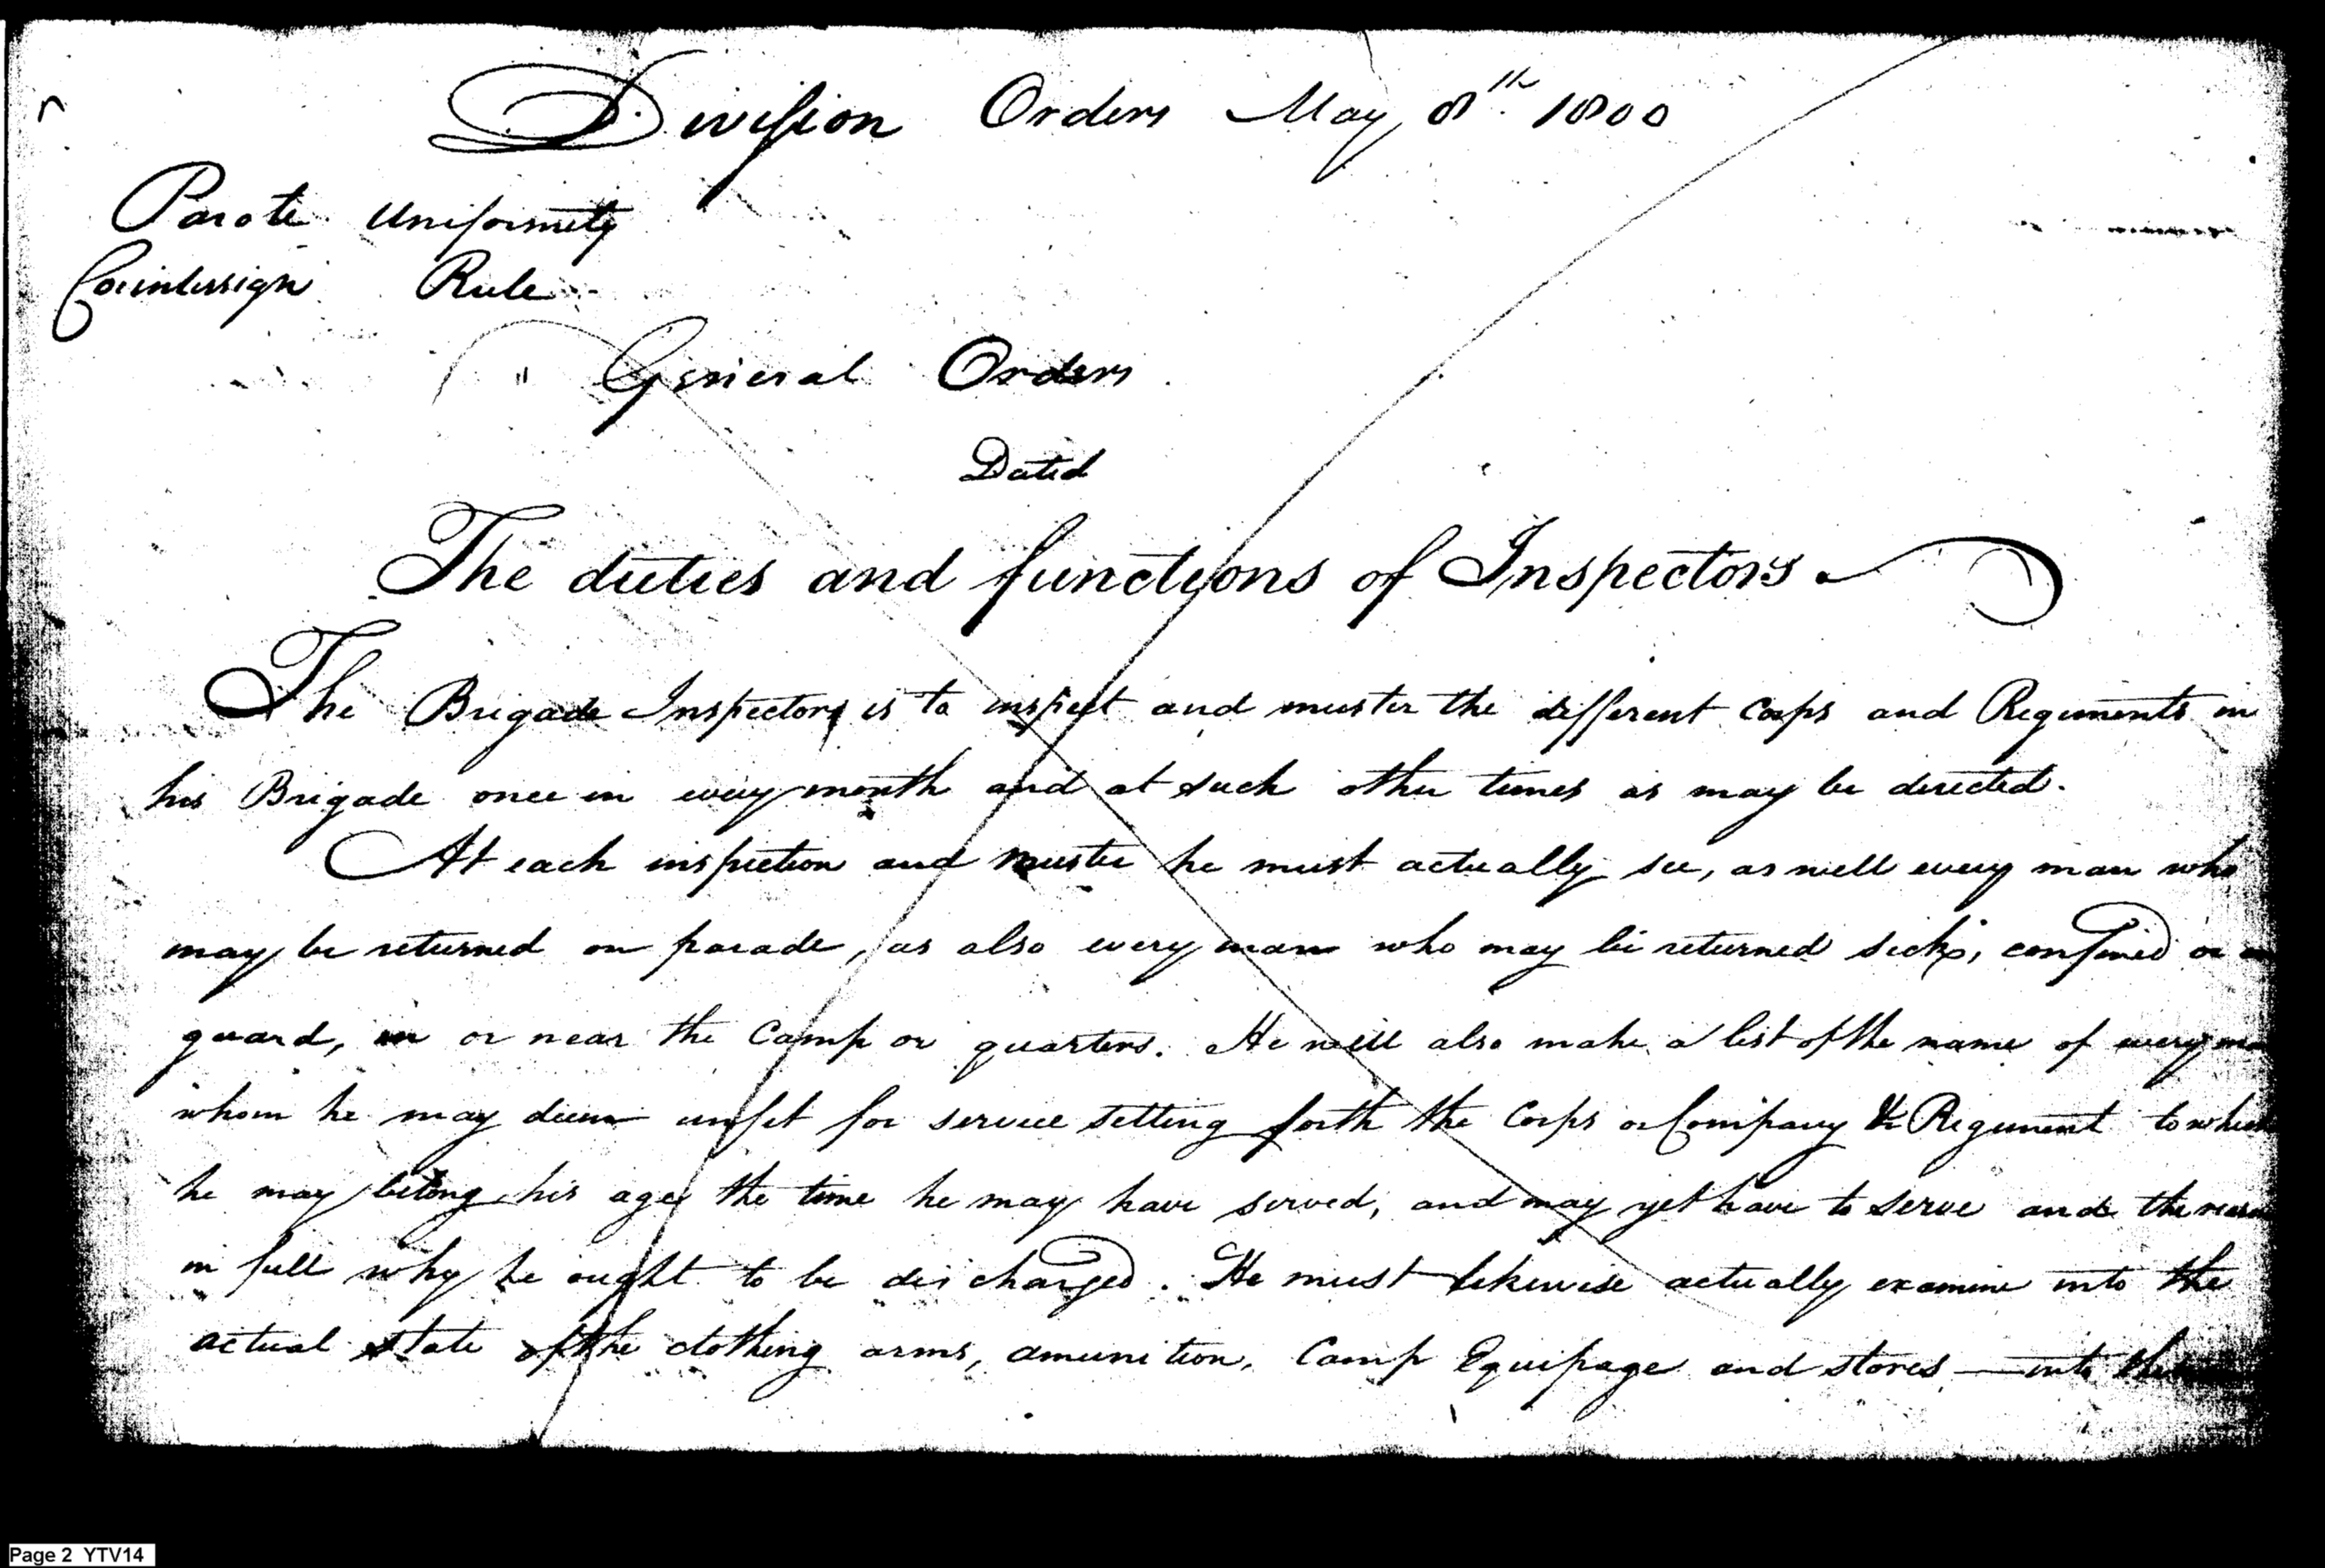 Division Orders May 8th. 1800
Parole Uniformity
Countersign Rule
" General Orders
Dated
The duties and functions of Inspectors
The Brigade Inspectors is to inspect and muster the different Corps and Regiments in
his Brigade once in every month and at such other times as may be directed.
At each inspection and muster he must actually see, as well every man who
may be returned on parade, as also every man who may be returned sick, confined or
guard, in or near the Camp or quarters. He will also make a list of the name of every
whom he may deem unfit for service setting forth the Corps or Company & Regiment to which
he may belong his age, the time he may have served, and may yet have to serve and the
in full why he ought to be discharged. He must likewise actually examine into the
actual state of the clothing arms, amunition, Camp Equipage and stores — into
Page 2 YTV14